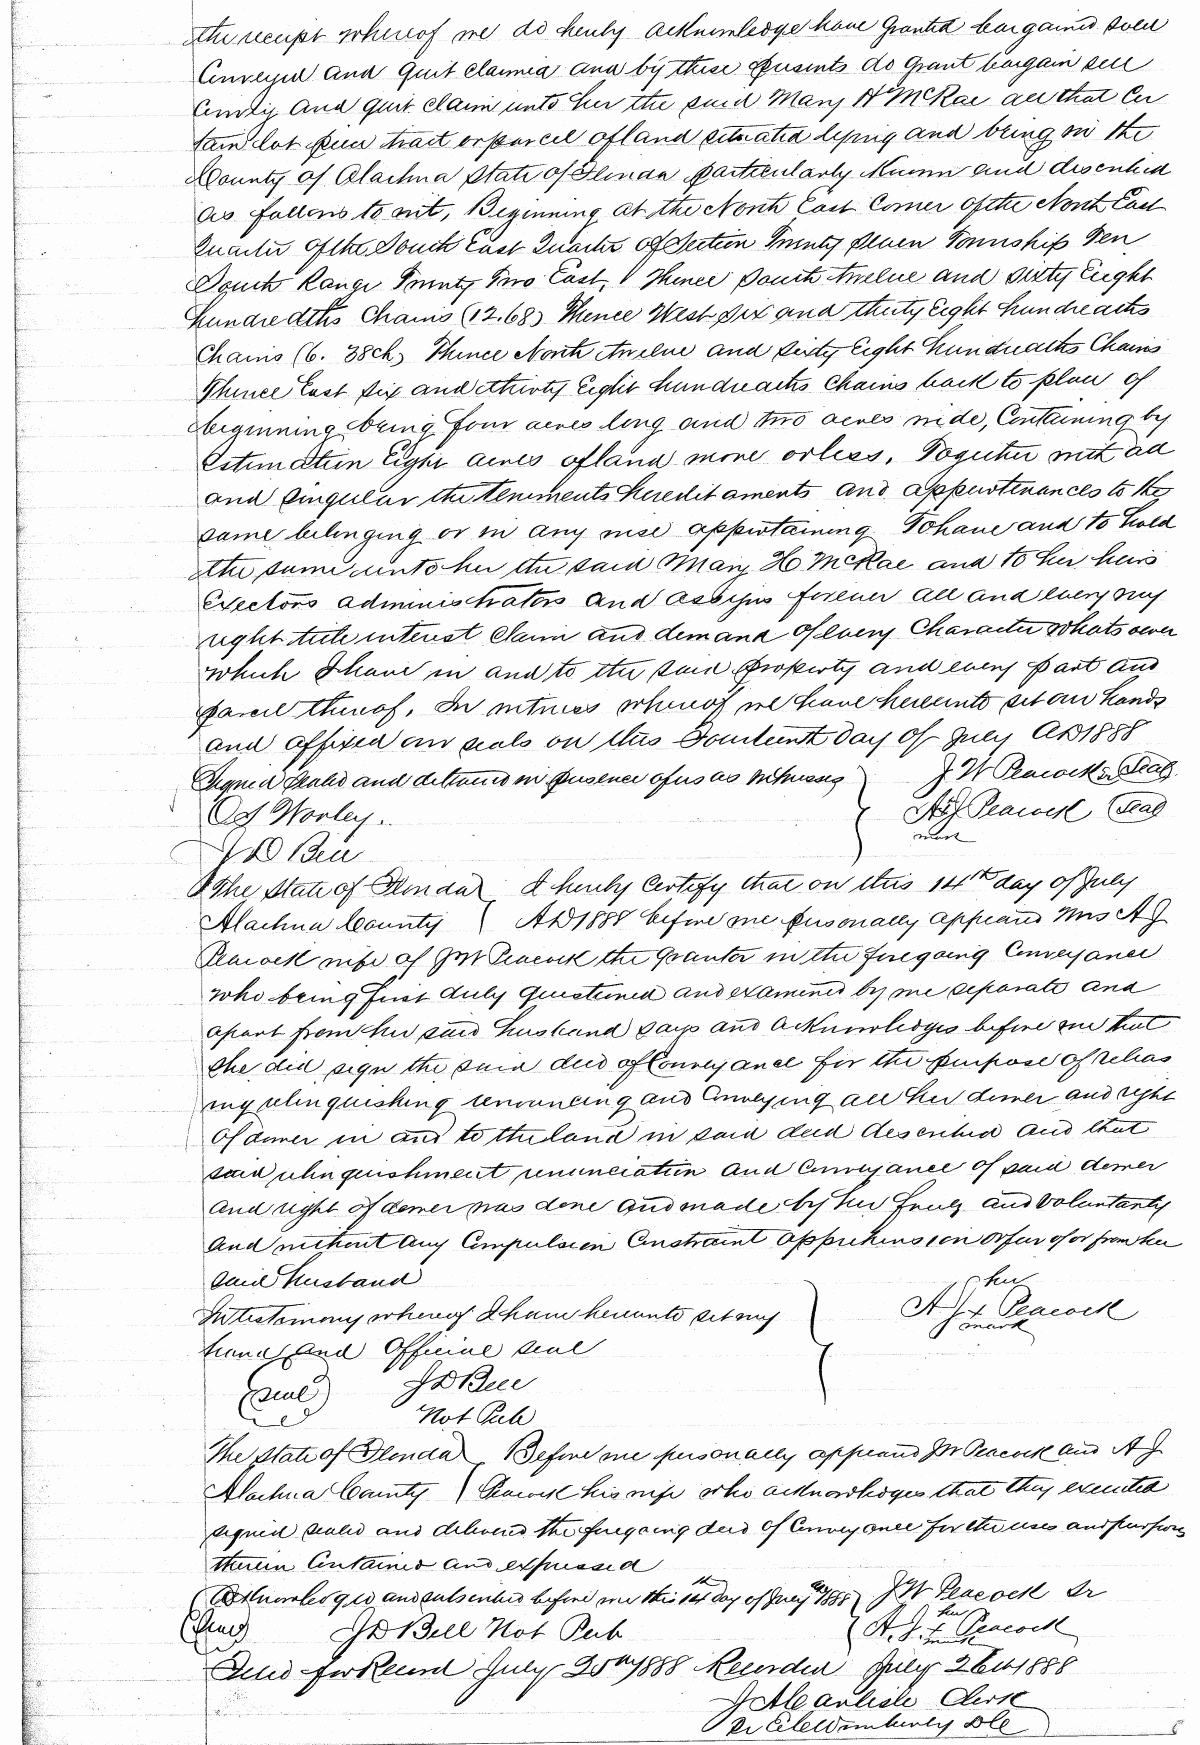 the receipt whereof we do hereby acknowledge have Granted bargained sold
Conveyed and Quit Claimed and by these presents do Grant bargain sell
Convey and Quit Claim unto her the said Mary H McRae all that Cer
tain lot piece tract or parcel of land situated lying and being in the
County of Alachua State of Florida particularly Known and described
as follows to wit, Beginning at the North East Corner of the North East
Quarter of the South East Quarter of Section Twenty Seven Township Ten
South Range Twenty Two East, Thence South twelve and Sixty Eight
hundredths Chains (12.68) Thence West Six and thirty Eight hundredths
Chains (6.38ch) Thence North twelve and Sixty Eight hundredths Chains
Thence East Six and thirty Eight hundredths Chains back to place of
beginning being four acres long and two acres wide, Containing by
Estimation Eight acres of land more or less. Together with all
and Singular the tenements hereditaments and appurtenances to the
same belonging or in any wise appertaining To have and to hold
the same unto her the said Mary H McRae and to her heirs
Exectors administrators and assigns forever all and every my
right title interest Claim and demand of every Character whatsoever
which I have in and to the said property and every part and
parcel thereof. In witness whereof we have hereunto set our hands
and affixed our seals on this Fourteenth day of July AD 1888
Signed Sealed and delivered in presence of us as witnesses
J W Peacock Sr (Seal)
Worley.
A J Peacock (Seal)
mark
J D Bell
The State of Florida I hereby Certify that on this 14th day of July
Alachua County AD 1888 before me personally appeared Mrs A J
Peacock wife of J W Peacock the Grantor in the foregoing Conveyance
who being first duly questioned and examined by me separate and
apart from her said husband says and acknowledges before me that
she did sign the said deed of Conveyance for the purpose of releas
ing relinquishing renouncing and Conveying all her dower and right
of dower in and to the land in said deed described and that
said relinquishment renunciation and Conveyance of said dower
and right of dower was done and made by her freely and voluntarily
and without any Compulsion Constraint apprehension or fear of or from her
said husband
her
In testimony whereof I have hereunto set my
A J x Peacock
mark
hand and Official seal
(Seal) J D Bell
Not Pub
The State of Florida Before me personally appeared J W Peacock and A J
Alachua County Peacock his wife who acknowledges that they executed
signed sealed and delivered the foregoing deed of Conveyance for the uses and purposes
therein Contained and expressed
Acknowledged and subscribed before me this 14th day of July AD 1888 J W Peacock Sr
(Seal) J D Bell Not Pub
her
A. J. x Peacock
mark
Filed for Record July 25th 1888 Recorded July 26th 1888
Clerk
Wimberly DC